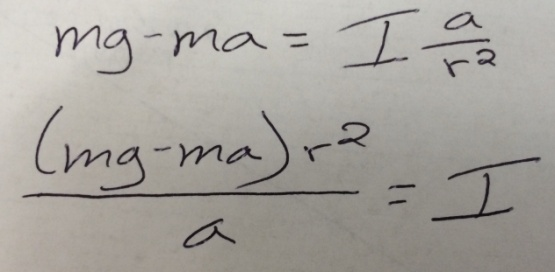 mg-ma = I a/r²
(mg-ma)r²/a = I